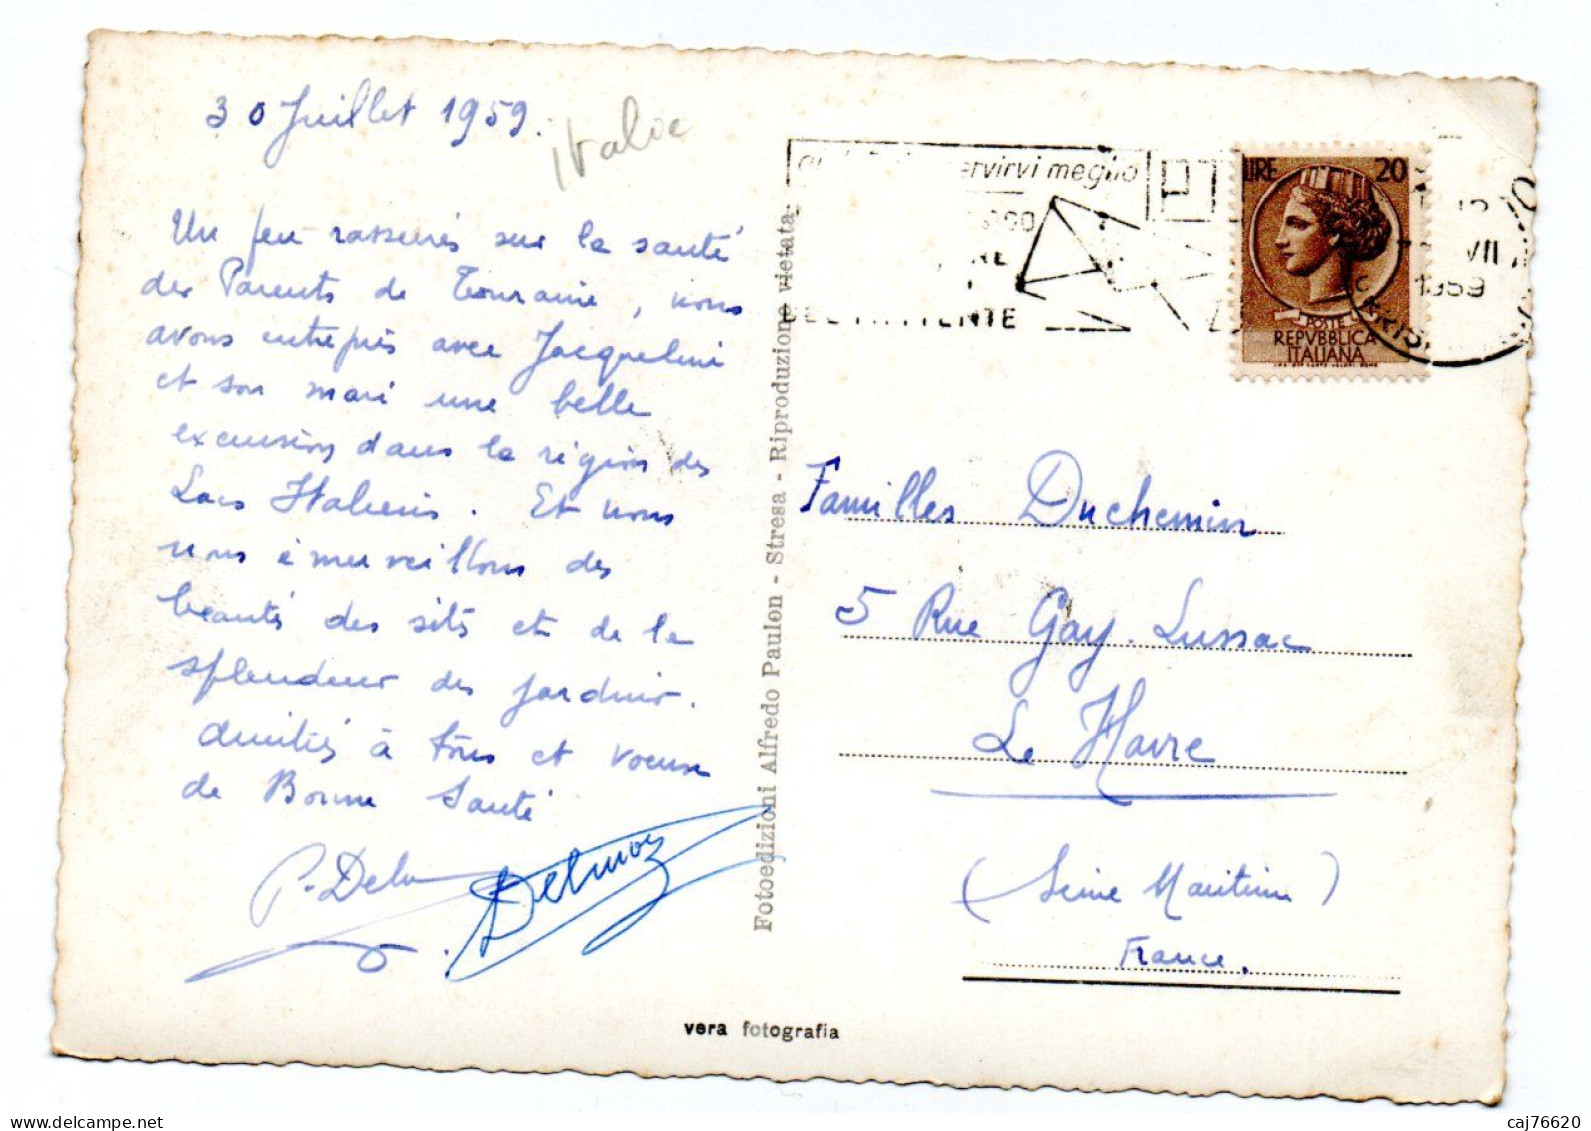 30 Juillet 1959.
Italie
Un peu rassurés sur la santé
des Parents de Touraine, nous
avons entrepris avec Jacqueline
et son mari une belle
excursion dans la région des
Lacs Italiens. Et nous
nous émerveillons des
beautés des sites et de la
splendeur des jardins.
Amitiés à tous et voeux
de Bonne Santé
P. Delm
Delmoy
Fotoedizioni Alfredo Paulon - Stresa - Riproduzione vietata
vera fotografia
servirvi meglio
LIRE 20
POSTE
REPVBBLICA
ITALIANA
VII
1959
Familles Duchemin
5 Rue Gay-Lussac
Le Havre
(Seine Maritime)
France.
caj76620